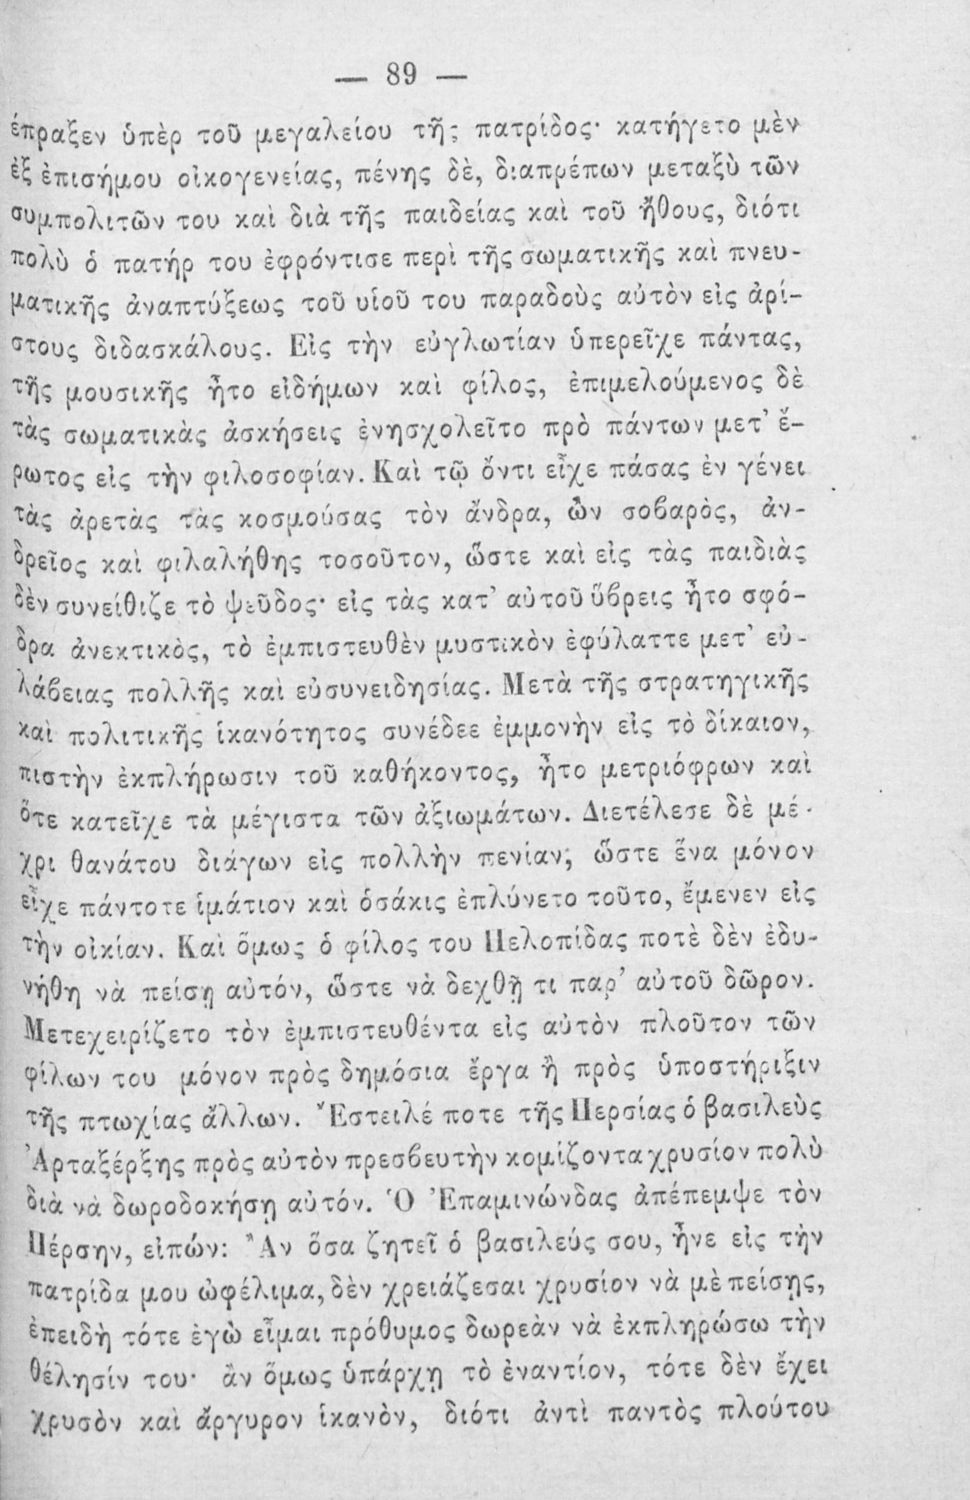 — 89 —
ἔπραξεν ὑπὲρ τοῦ μεγαλείου τῆς πατρίδος· κατήγετο μὲν
ἐξ ἐπισήμου οἰκογενείας, πένης δὲ, διαπρέπων μεταξὺ τῶν
συμπολιτῶν του καὶ διὰ τῆς παιδείας καὶ τοῦ ἤθους, διότι
πολὺ ὁ πατήρ του ἐφρόντισε περὶ τῆς σωματικῆς καὶ πνευ-
ματικῆς ἀναπτύξεως τοῦ υἱοῦ του παραδοὺς αὐτὸν εἰς ἀρί-
στους διδασκάλους. Εἰς τὴν εὐγλωτίαν ὑπερεῖχε πάντας,
τῆς μουσικῆς ἦτο εἰδήμων καὶ φίλος, ἐπιμελούμενος δὲ
τὰς σωματικὰς ἀσκήσεις ἐνησχολεῖτο πρὸ πάντων μετ’ ἔ-
ρωτος εἰς τὴν φιλοσοφίαν. Καὶ τῷ ὄντι εἶχε πάσας ἐν γένει
τὰς ἀρετὰς τὰς κοσμούσας τὸν ἄνδρα, ὢν σοβαρὸς, ἀν-
δρεῖος καὶ φιλαλήθης τοσοῦτον, ὥστε καὶ εἰς τὰς παιδιὰς
δὲν συνείθιζε τὸ ψεῦδος· εἰς τὰς κατ’ αὐτοῦ ὕβρεις ἦτο σφό-
δρα ἀνεκτικὸς, τὸ ἐμπιστευθὲν μυστικὸν ἐφύλαττε μετ’ εὐ-
λάβειας πολλῆς καὶ εὐσυνειδησίας. Μετὰ τῆς στρατηγικῆς
καὶ πολιτικῆς ἱκανότητος συνέδεε ἐμμονὴν εἰς τὸ δίκαιον,
πιστὴν ἐκπλήρωσιν τοῦ καθήκοντος, ἦτο μετριόφρων καὶ
ὅτε κατεῖχε τὰ μέγιστα τῶν ἀξιωμάτων. Διετέλεσε δὲ μέ-
χρι θανάτου διάγων εἰς πολλὴν πενίαν, ὥστε ἕνα μόνον
εἶχε πάντοτε ἱμάτιον καὶ ὁσάκις ἐπλύνετο τοῦτο, ἔμενεν εἰς
τὴν οἰκίαν. Καὶ ὅμως ὁ φίλος του Πελοπίδας ποτὲ δὲν ἐδυ-
νήθη νὰ πείσῃ αὐτόν, ὥστε νὰ δεχθῇ τι παρ’ αὐτοῦ δῶρον.
Μετεχειρίζετο τὸν ἐμπιστευθέντα εἰς αὐτὸν πλοῦτον τῶν
φίλων του μόνον πρὸς δημόσια ἔργα ἢ πρὸς ὑποστήριξιν
τῆς πτωχίας ἄλλων. Ἔστειλέ ποτε τῆς Περσίας ὁ βασιλεὺς
Ἀρταξέρξης πρὸς αὐτὸν πρεσβευτὴν κομίζοντα χρυσίον πολὺ
διὰ νὰ δωροδοκήσῃ αὐτόν. Ὁ Ἐπαμινώνδας ἀπέπεμψε τὸν
Πέρσην, εἰπών: Ἂν ὅσα ζητεῖ ὁ βασιλεύς σου, ἦνε εἰς τὴν
πατρίδα μου ὠφέλιμα, δὲν χρειάζεσαι χρυσίον νὰ μὲ πείσῃς,
ἐπειδὴ τότε ἐγὼ εἶμαι πρόθυμος δωρεὰν νὰ ἐκπληρώσω τὴν
θέλησίν του· ἂν ὅμως ὑπάρχῃ τὸ ἐναντίον, τότε δὲν ἔχει
χρυσὸν καὶ ἄργυρον ἱκανὸν, διότι ἀντὶ παντὸς πλούτου